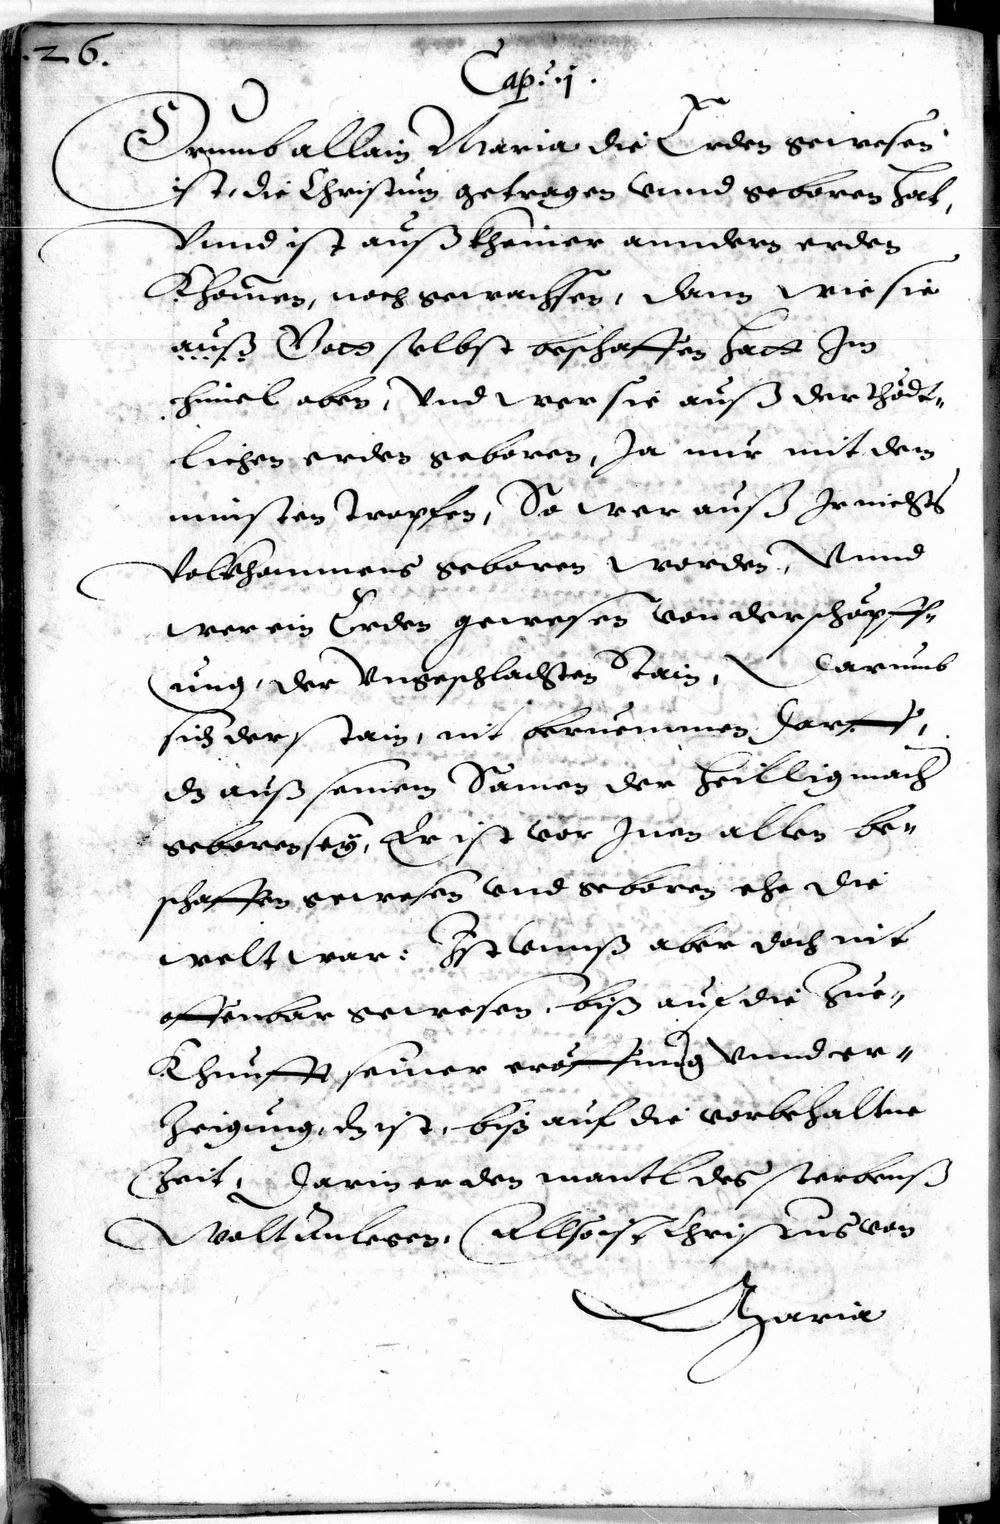 .26.
Cap: .j.
Drumb allain Maria die Erden gewesen
ist, die Christum getragen vnnd geboren hat,
Vnnd ist auß kheiner anndern erden
Khomen, noch gewachssen, dann wie sie
auß Gott selbst beschaffen hatt Im
himel oben, Vnd wer sie auß der thödt-
lichen erden geboren, Ja nur mit dem
minsten tropfen, So wer auß Ir nichts
Volkhommens geboren worden, Vnnd
wer ein Erden gewesen von der schöpff-
ung, der Vngeschlachten Stain, Darumb
sich der stain, nit beruemmen darff,
dz auß seinem Samen der heilligmach
geboren sey, Er ist vor Inen allen be-
schaffen gewesen vnd geboren ehe die
welt war: Ist vnnß aber doch nit
offenbar gewesen, biß auf die Zue-
Khunfft seiner eröffnung Vnnd er-
Zeigung, dz ist, biß auf die vorbehaltne
Zeit, Darin er den mantl des sterbenß
Wolt Anlegen, Allso ist Christus von
Maria